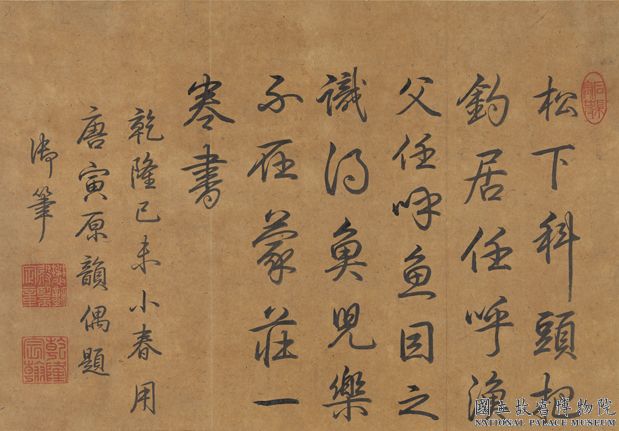 松下科頭把
釣居任呼漁
父任呼魚因之
識得魚兒樂
不在蒙莊一
卷書
乾隆己未小春用
唐寅原韻偶題
御筆
乾隆宸翰
國立故宮博物院
NATIONAL PALACE MUSEUM